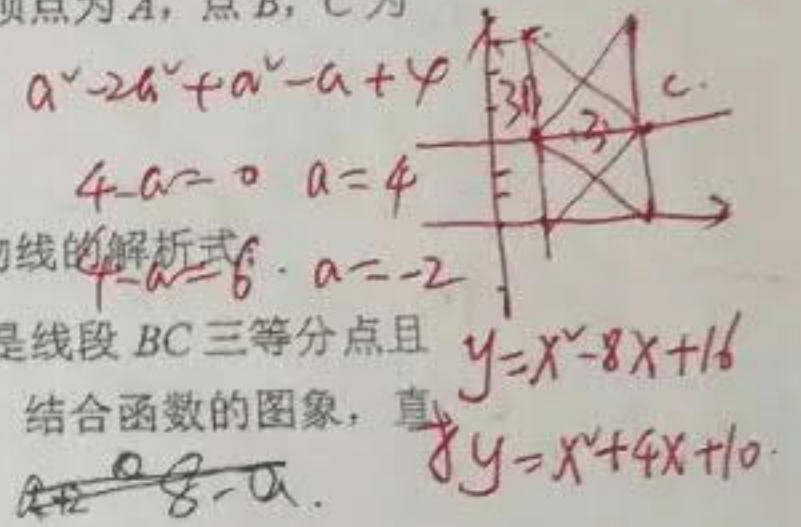 顶点为A，点B，C为
a²-2a²+a²-a+4
3
3
C.
4-a=0 a=4
物线的解析式
4-a=6. a=-2
是线段BC三等分点且
y=x²-8x+16
结合函数的图象，直
y=x²+4x+10.
8-a.